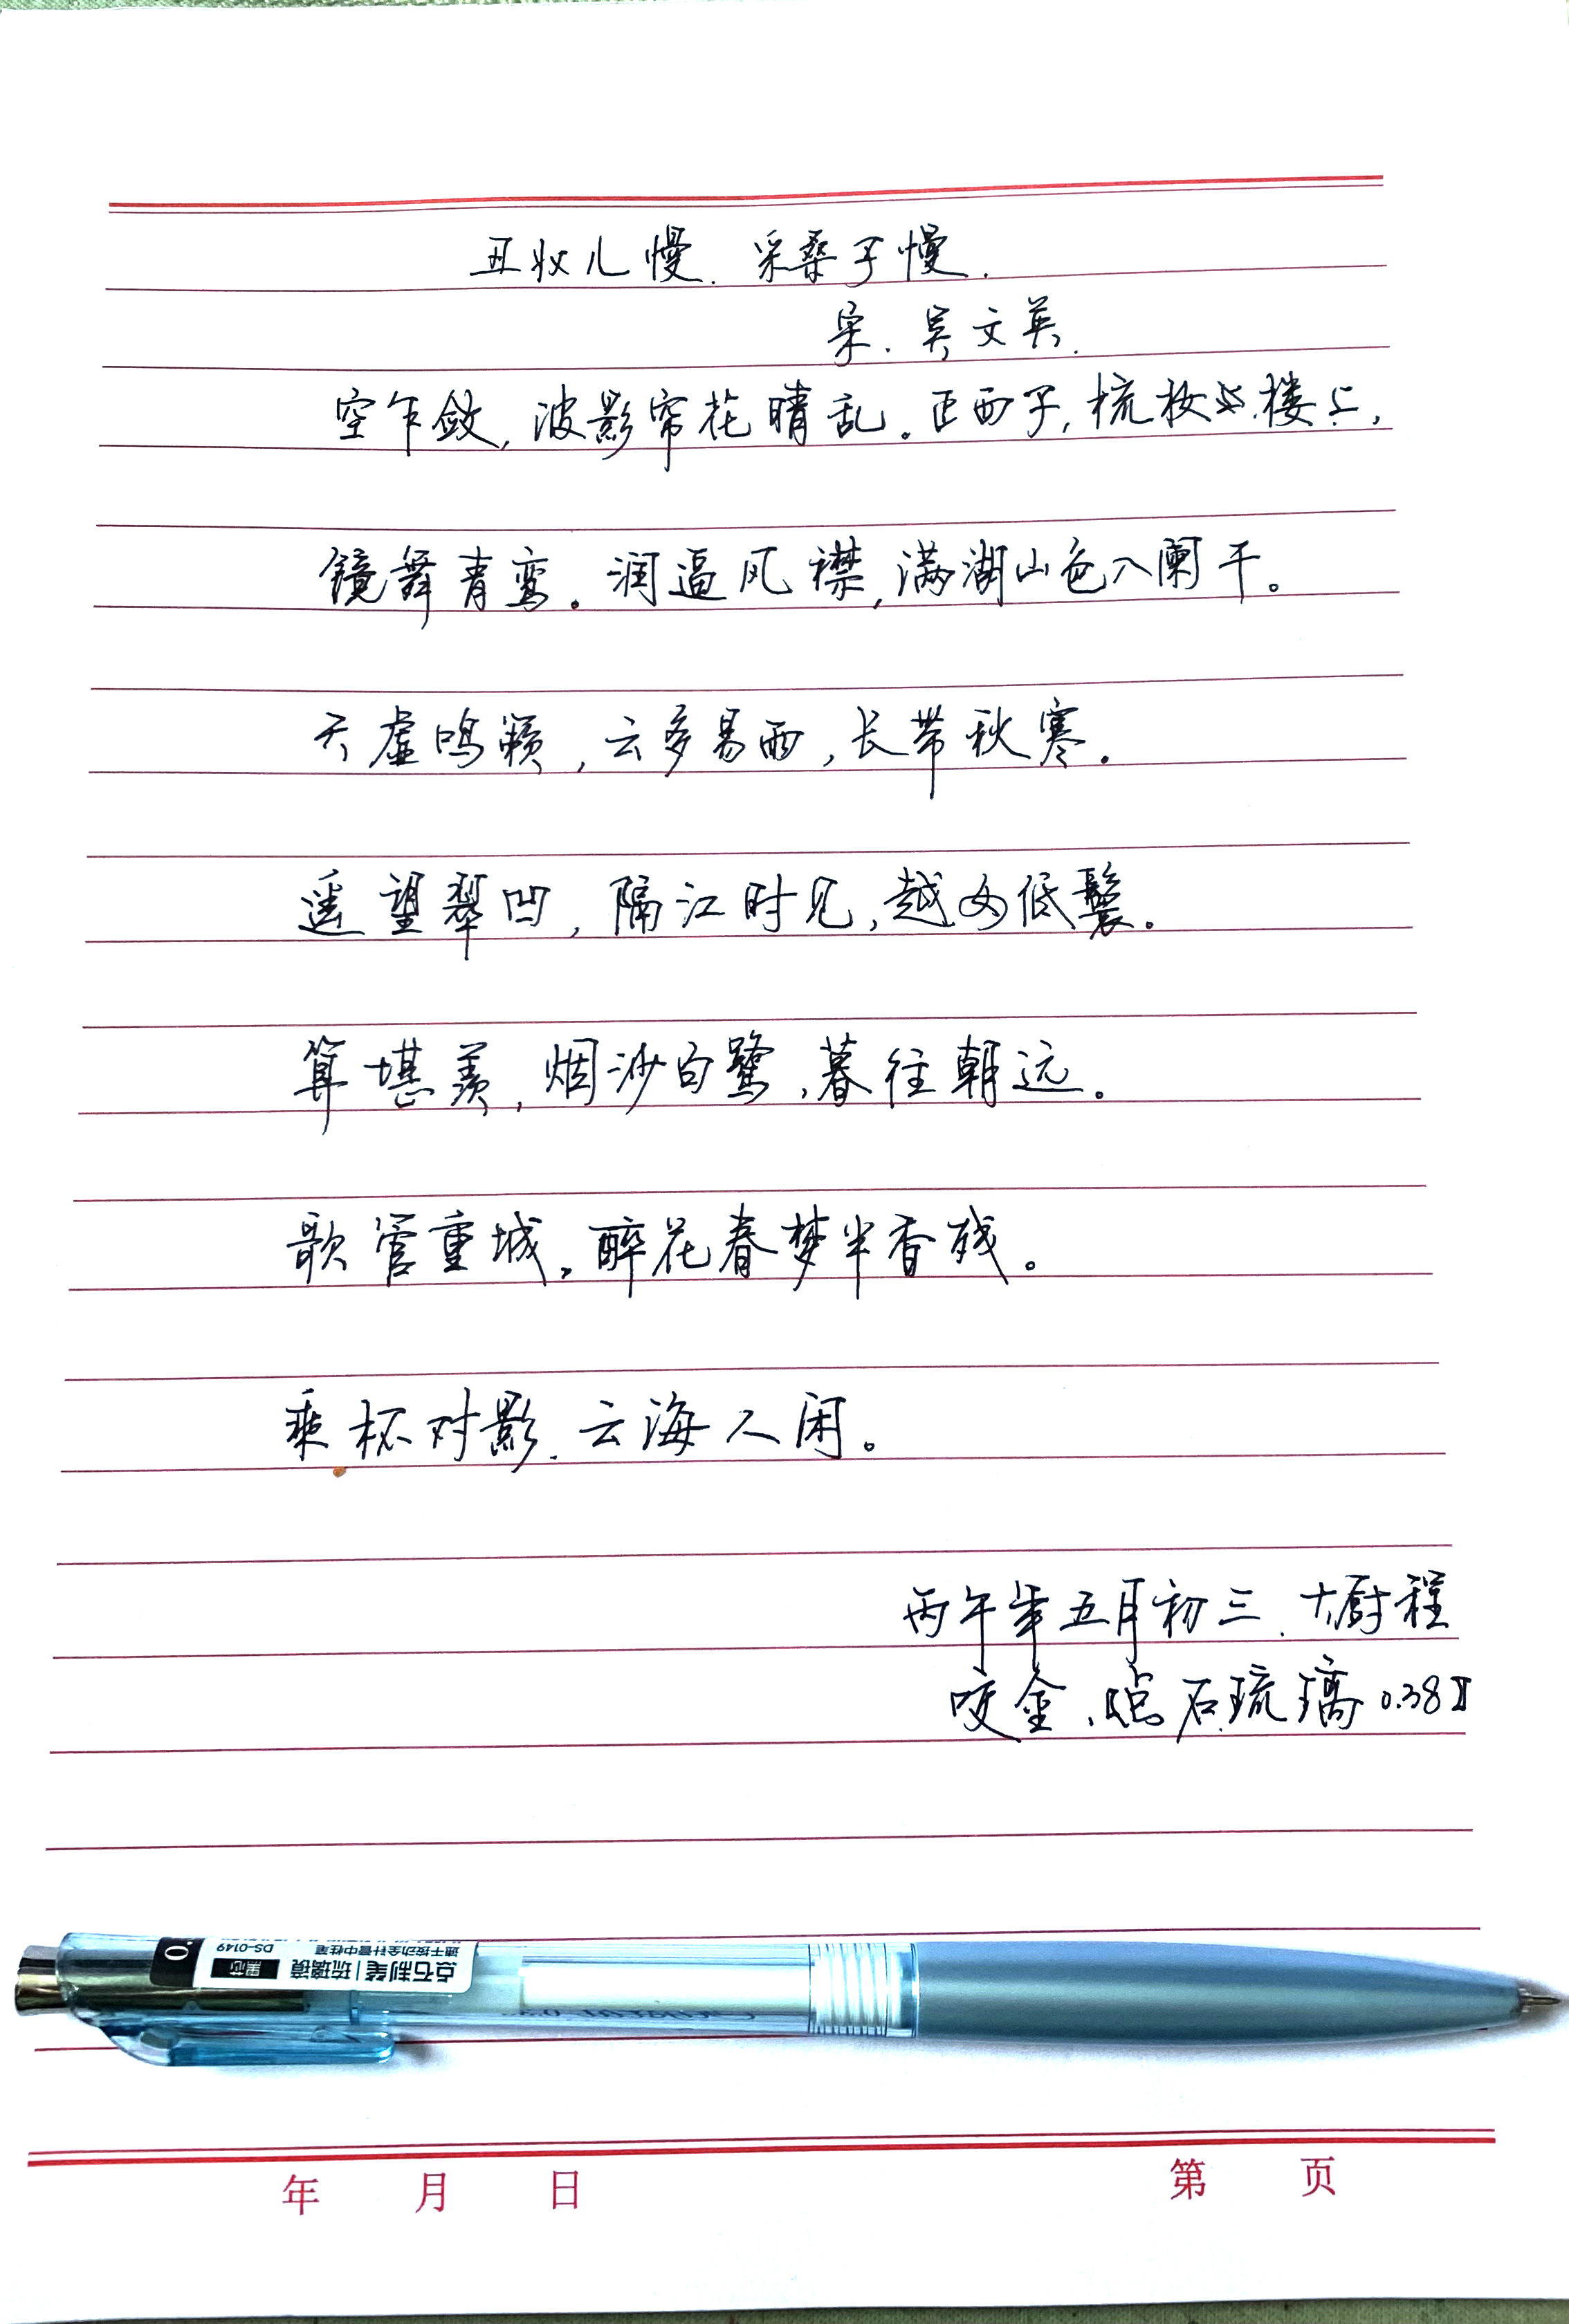 丑奴儿慢.采桑子慢.
宋.吴文英.
空乍敛,波影帘花晴乱。正西子,梳妆楼上,
镜舞青鸾。润逼风襟,满湖山色入阑干。
天虚鸣籁,云多易雨,长带秋寒。
遥望翠凹,隔江时见,越女低鬟。
算堪羡,烟沙白鹭,暮往朝远。
歌管重城,醉花春梦半香残。
乘杯对影.云海人闲。
丙午年五月初三.大厨程
咬金、点石琉璃0.38
点石制笔|琉璃镜
速干按动全针管中性笔
DS-0149
年 月 日 第 页